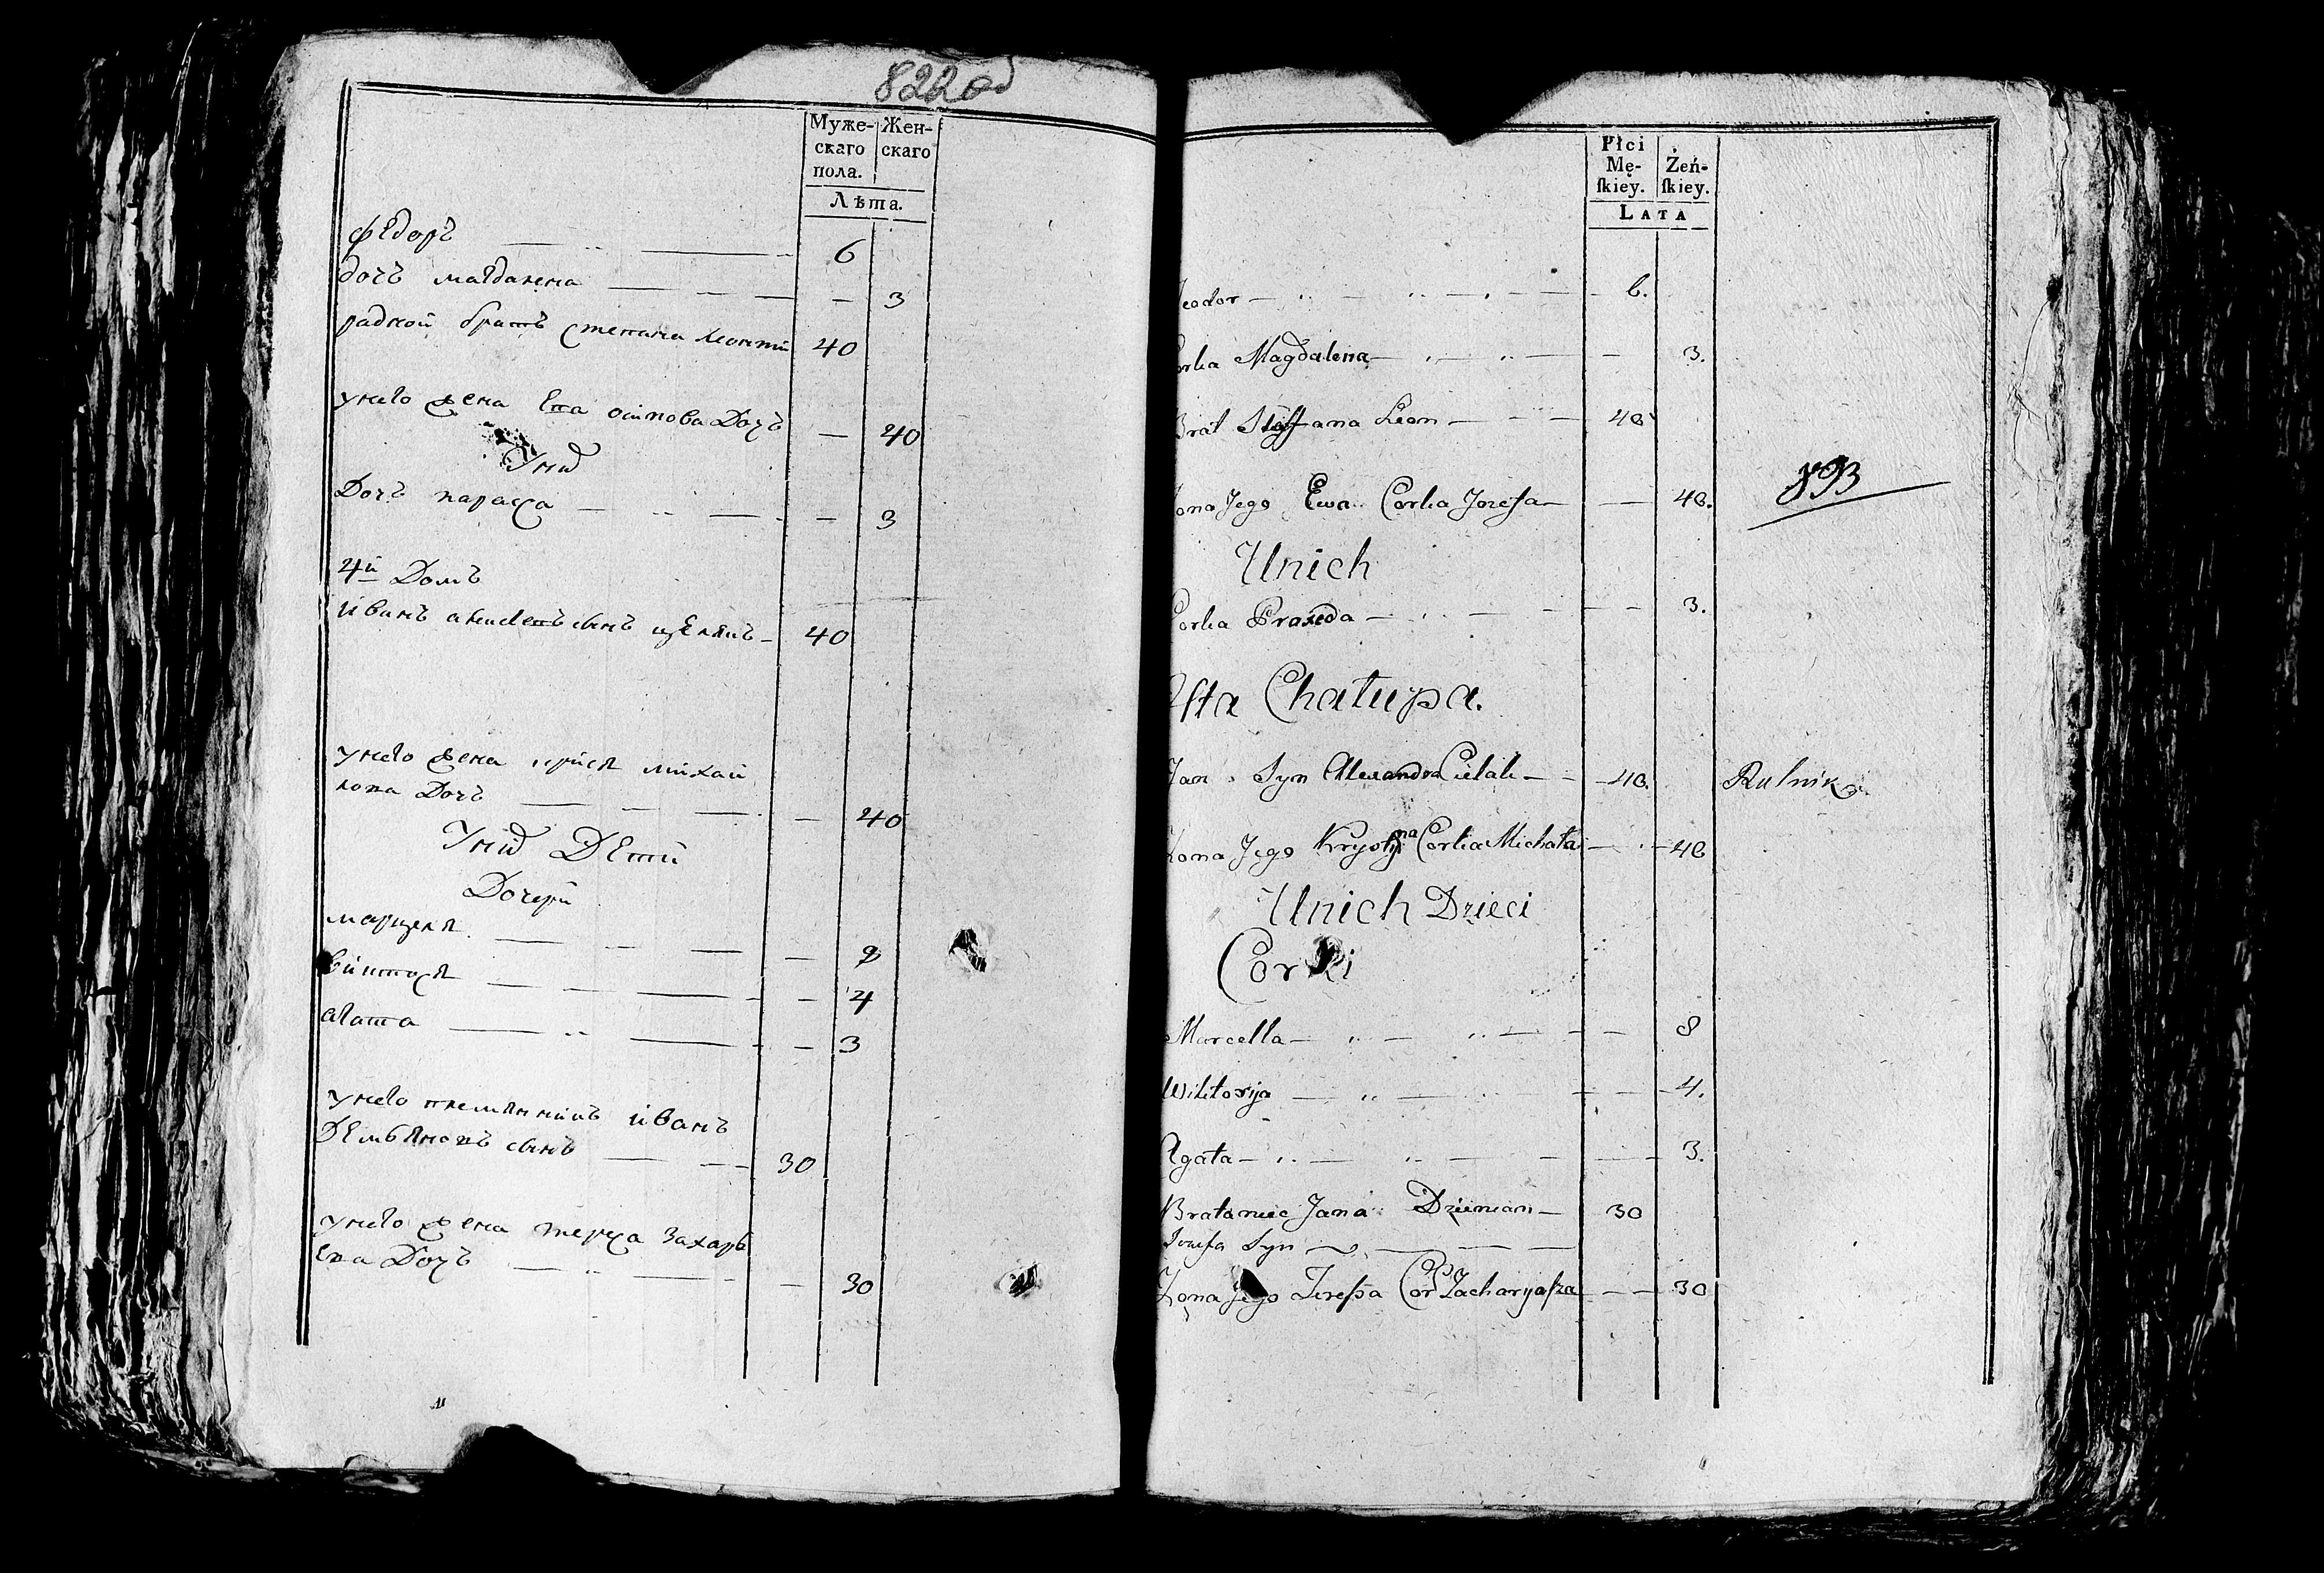 822об
Муже-
скаго
пола.
Жен-
скаго
Лѣта.
Федоръ 6
дочъ магдалена 3
радной братъ степана леонти 40
унего жена Ева осипова Дочъ 40
Унид
Дочъ параса 3
4й Домъ
иванъ сынъ 40
унего жена михай
лова Дочъ 40
Унид Дети
Дочери
марцеля 8
виктося 4
агата 3
унего племянникъ иванъ
Демьяновъ сынъ 30
унего жена тереса захарь
ева Дочъ 30
Płci
Mę-
ſkiey.
Żeń-
ſkiey.
LATA
Teodor 6.
Corka Magdalena 3.
Brat Steffana Leon 40
Zona Jego Ewa Corka Jozefa 40.
893
Unich
Corka Praxeda 3.
4ſta Chałupa.
Jan Syn Alexandra Cielak 40. Rolnik
Zona Jego Krystyna Corka Michała 40
Unich Dzieci
Corki
Marcella 8
Wiktorija 4.
Agata 3.
Brataniec Jana Dziemian 30
Jozefa Syn
Zona Jego Tereſsa Cor Zacharyaſza 30